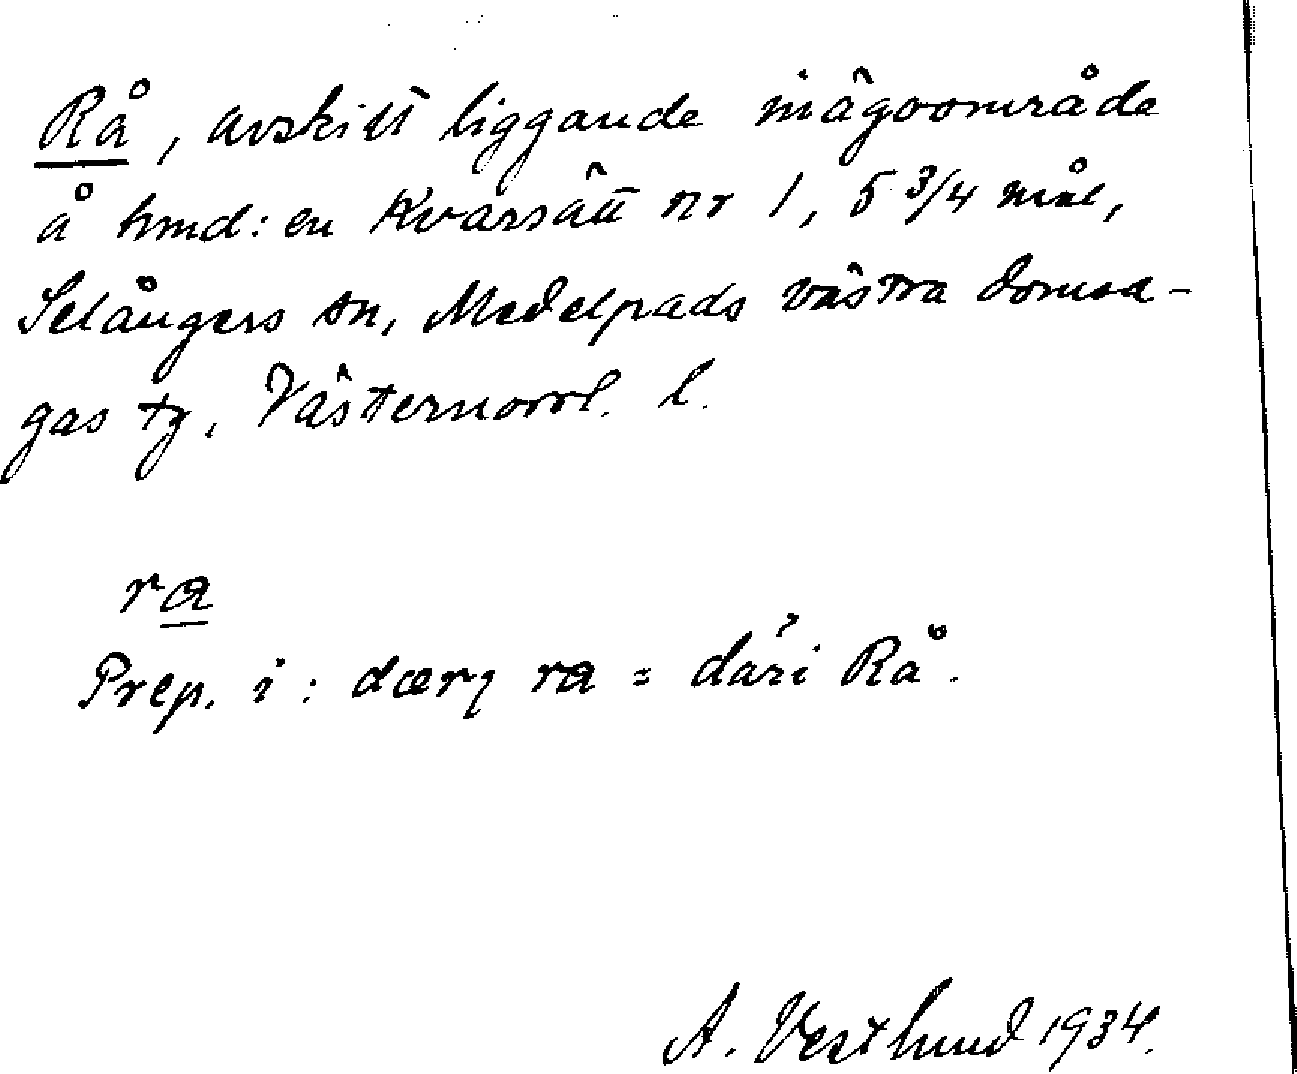 Rå, avskilt liggande inägoområde
å hmd:en Kvarsätt nr 1, 5 3/4 mål,
Selångers sn, Medelpads västra domsa-
gas tg, Västernorrl. l.
ra
Prep. i: dærɩ ra = däri Rå.
A. Vestlund 1934.